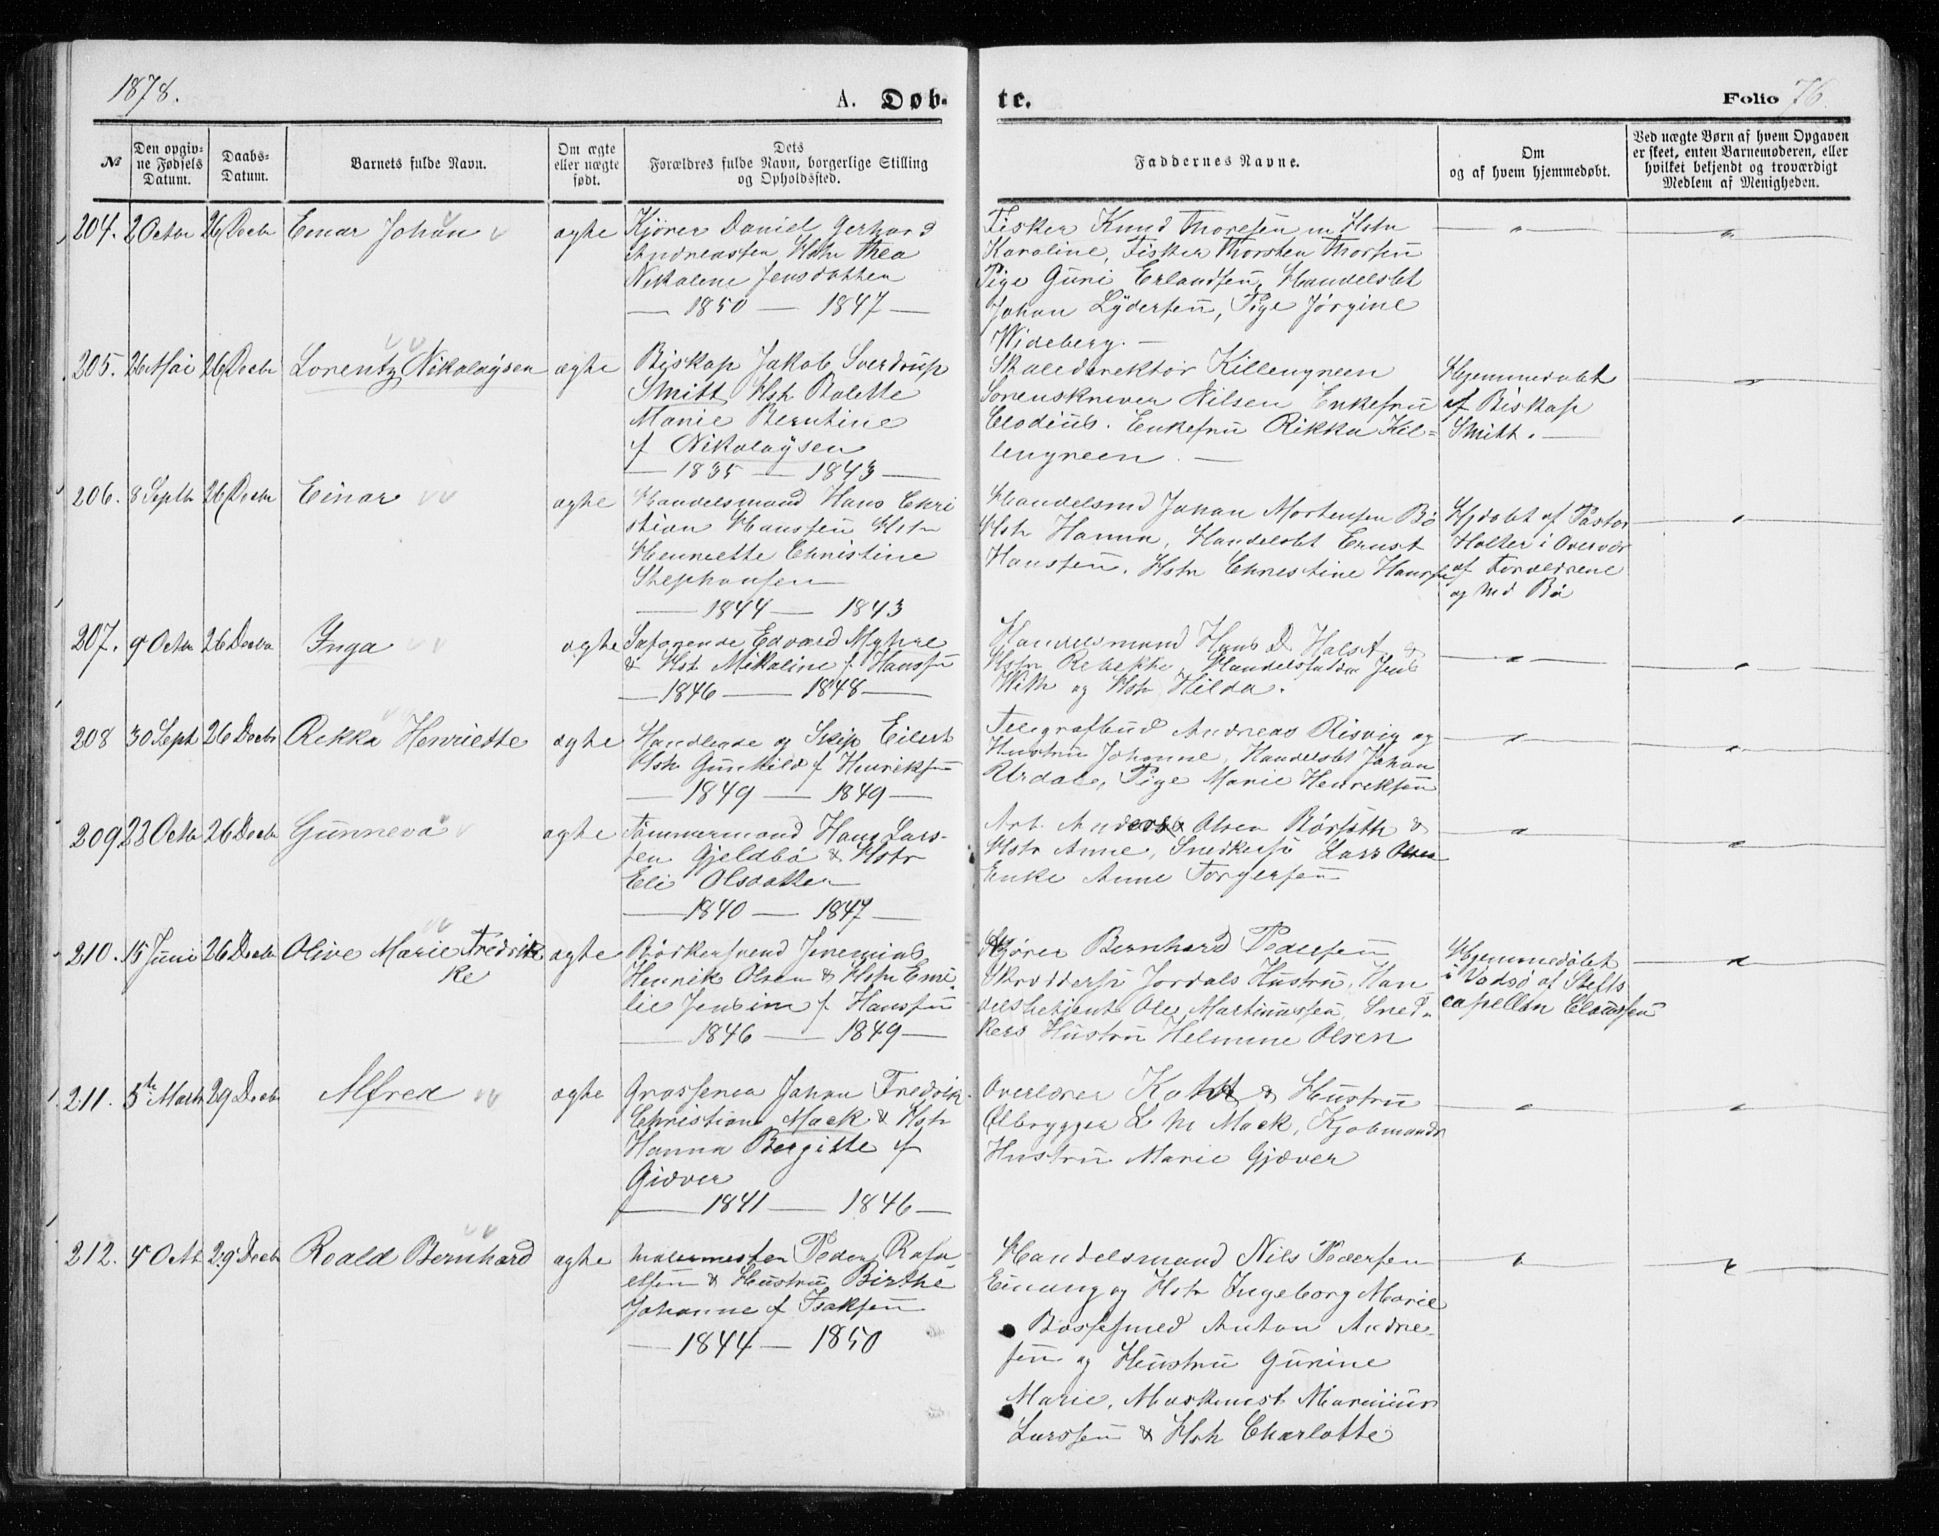 1878.
A. Døb-
te.
Folio 76.
№
Den opgiv-
ne Fødsels
Datum.
Daabs-
Datum.
Barnets fulde Navn.
Om ægte
eller uægte
født.
Dets
Forældres fulde Navn, borgerlige Stilling
og Opholdssted.
Faddernes Navne.
Om
og af hvem hjemmedøbt.
Ved uægte Børn af hvem Opgaven
er skeet, enten Barnemoderen, eller
hvilket bekjendt og troværdigt
Medlem af Menigheden.
204. 2 Octbr 26 Decbr Einar Johan
ægte
Kjører Daniel Gerhard
Andreassen Hstr Thea
Nikoline Jensdatter
— 1850 — 1847 —
Fisker Knud Thoresen m Hstr
Karoline, Fisker Thorsten Thorsen
Pige Guri Erlandsen, Handelsbt
Johan Lydersen, Pige Jørgine
Wideberg. —
205. 26 Mai 26 Decbr Lorentz Nikolaysen
ægte
Biskop Jakob Sverdrup
Smitt Hstr Bolette
Marie Berntine
f Nikolaysen
— 1835 — 1843 —
Skoledirektør Killengreen
Sorenskriver Nilsen Enkefru
Clodius. Enkefru Rikka Kil-
lengreen. —
Hjemmedøbt
af Biskop
Smitt. —
206. 8 Septbr 26 Decbr Einar
ægte
Handelsmand Hans Chri
stian Hanssen Hstr
Henriette Christine
Stephansen
— 1844 — 1843
Handelsmd Johan Mortensen Bø
Hstr Hanna, Handelsbt Ernst
Hanssen, Hstr Christine Hanssen
Hjdøbt af Pastor
Holter i Overvær
af Forældrene
og Md Bø
207. 9 Octbr 26 Decbr Inga
ægte
Søfarende Edvard Myhre
& Hstr Mikaline f Hanssen
— 1846 — 1848 —
Handelsmand Hans D Holst &
Hstr Rebekke, Handelsfuldm Jens
With og Hstr Hilda.
208 30 Sept 26 Decbr Rikka Henriette
ægte
Handlende og Skip Eilert
Hstr Gunhild f Henriksen
— 1849 — 1849 —
Telegrafbud Andreas Risvig og
Hustru Johanne, Handelsbt Johan
Urdal, Pige Marie Henriksen
209 22 Octbr 26 Decbr Gunneva
ægte
Tømmermand Hans Lars-
sen Gjeldbø & Hstr
Eli Olsdatter
— 1840 — 1847 —
Arb. Anders Olsen Børseth &
Hstr Anne, Snedkersv Lars Olsen
Enke Anne Torgersen
210. 15 Juni 26 Decbr Olive Marie Fredrik
ke
ægte
Bødkersvend Jeremias
Henrik Olsen & Hstr Emi-
lie Jensine f Hanssen
— 1846 — 1849 —
Kjører Bernhard Pedersen
Skræddersv Jordals Hustru, Han
delsbetjent Ole Martinussen, Sned-
kers Hustru Helmine Olsen
Hjemmedøbt
i Vadsø af Stifts
capellan Claussen
211. 5te Marts 29 Decbr Alfred
ægte
Grosserer Johan Fredrik
Christian Mack & Hstr
Hanna Bergitte f
Giæver
— 1841 — 1846 —
Overlærer Koht & Hustru
Ølbrygger L M Mack, Kjøbmands
Hustru Marie Gjæver
212. 4 Octb 29 Decbr Roald Bernhard
ægte
Malermester Peder Rafa-
elsen & Hustru Birthe
Johanne f Isaksen
— 1844 — 1850
Handelsmand Nils Pedersen
Einang og Hstr Ingeborg Marie
Bøssesmed Anton Andre-
sen og Hustru Gurine
Marie, Maskinist Marinius
Larssen & Hstr Charlotte